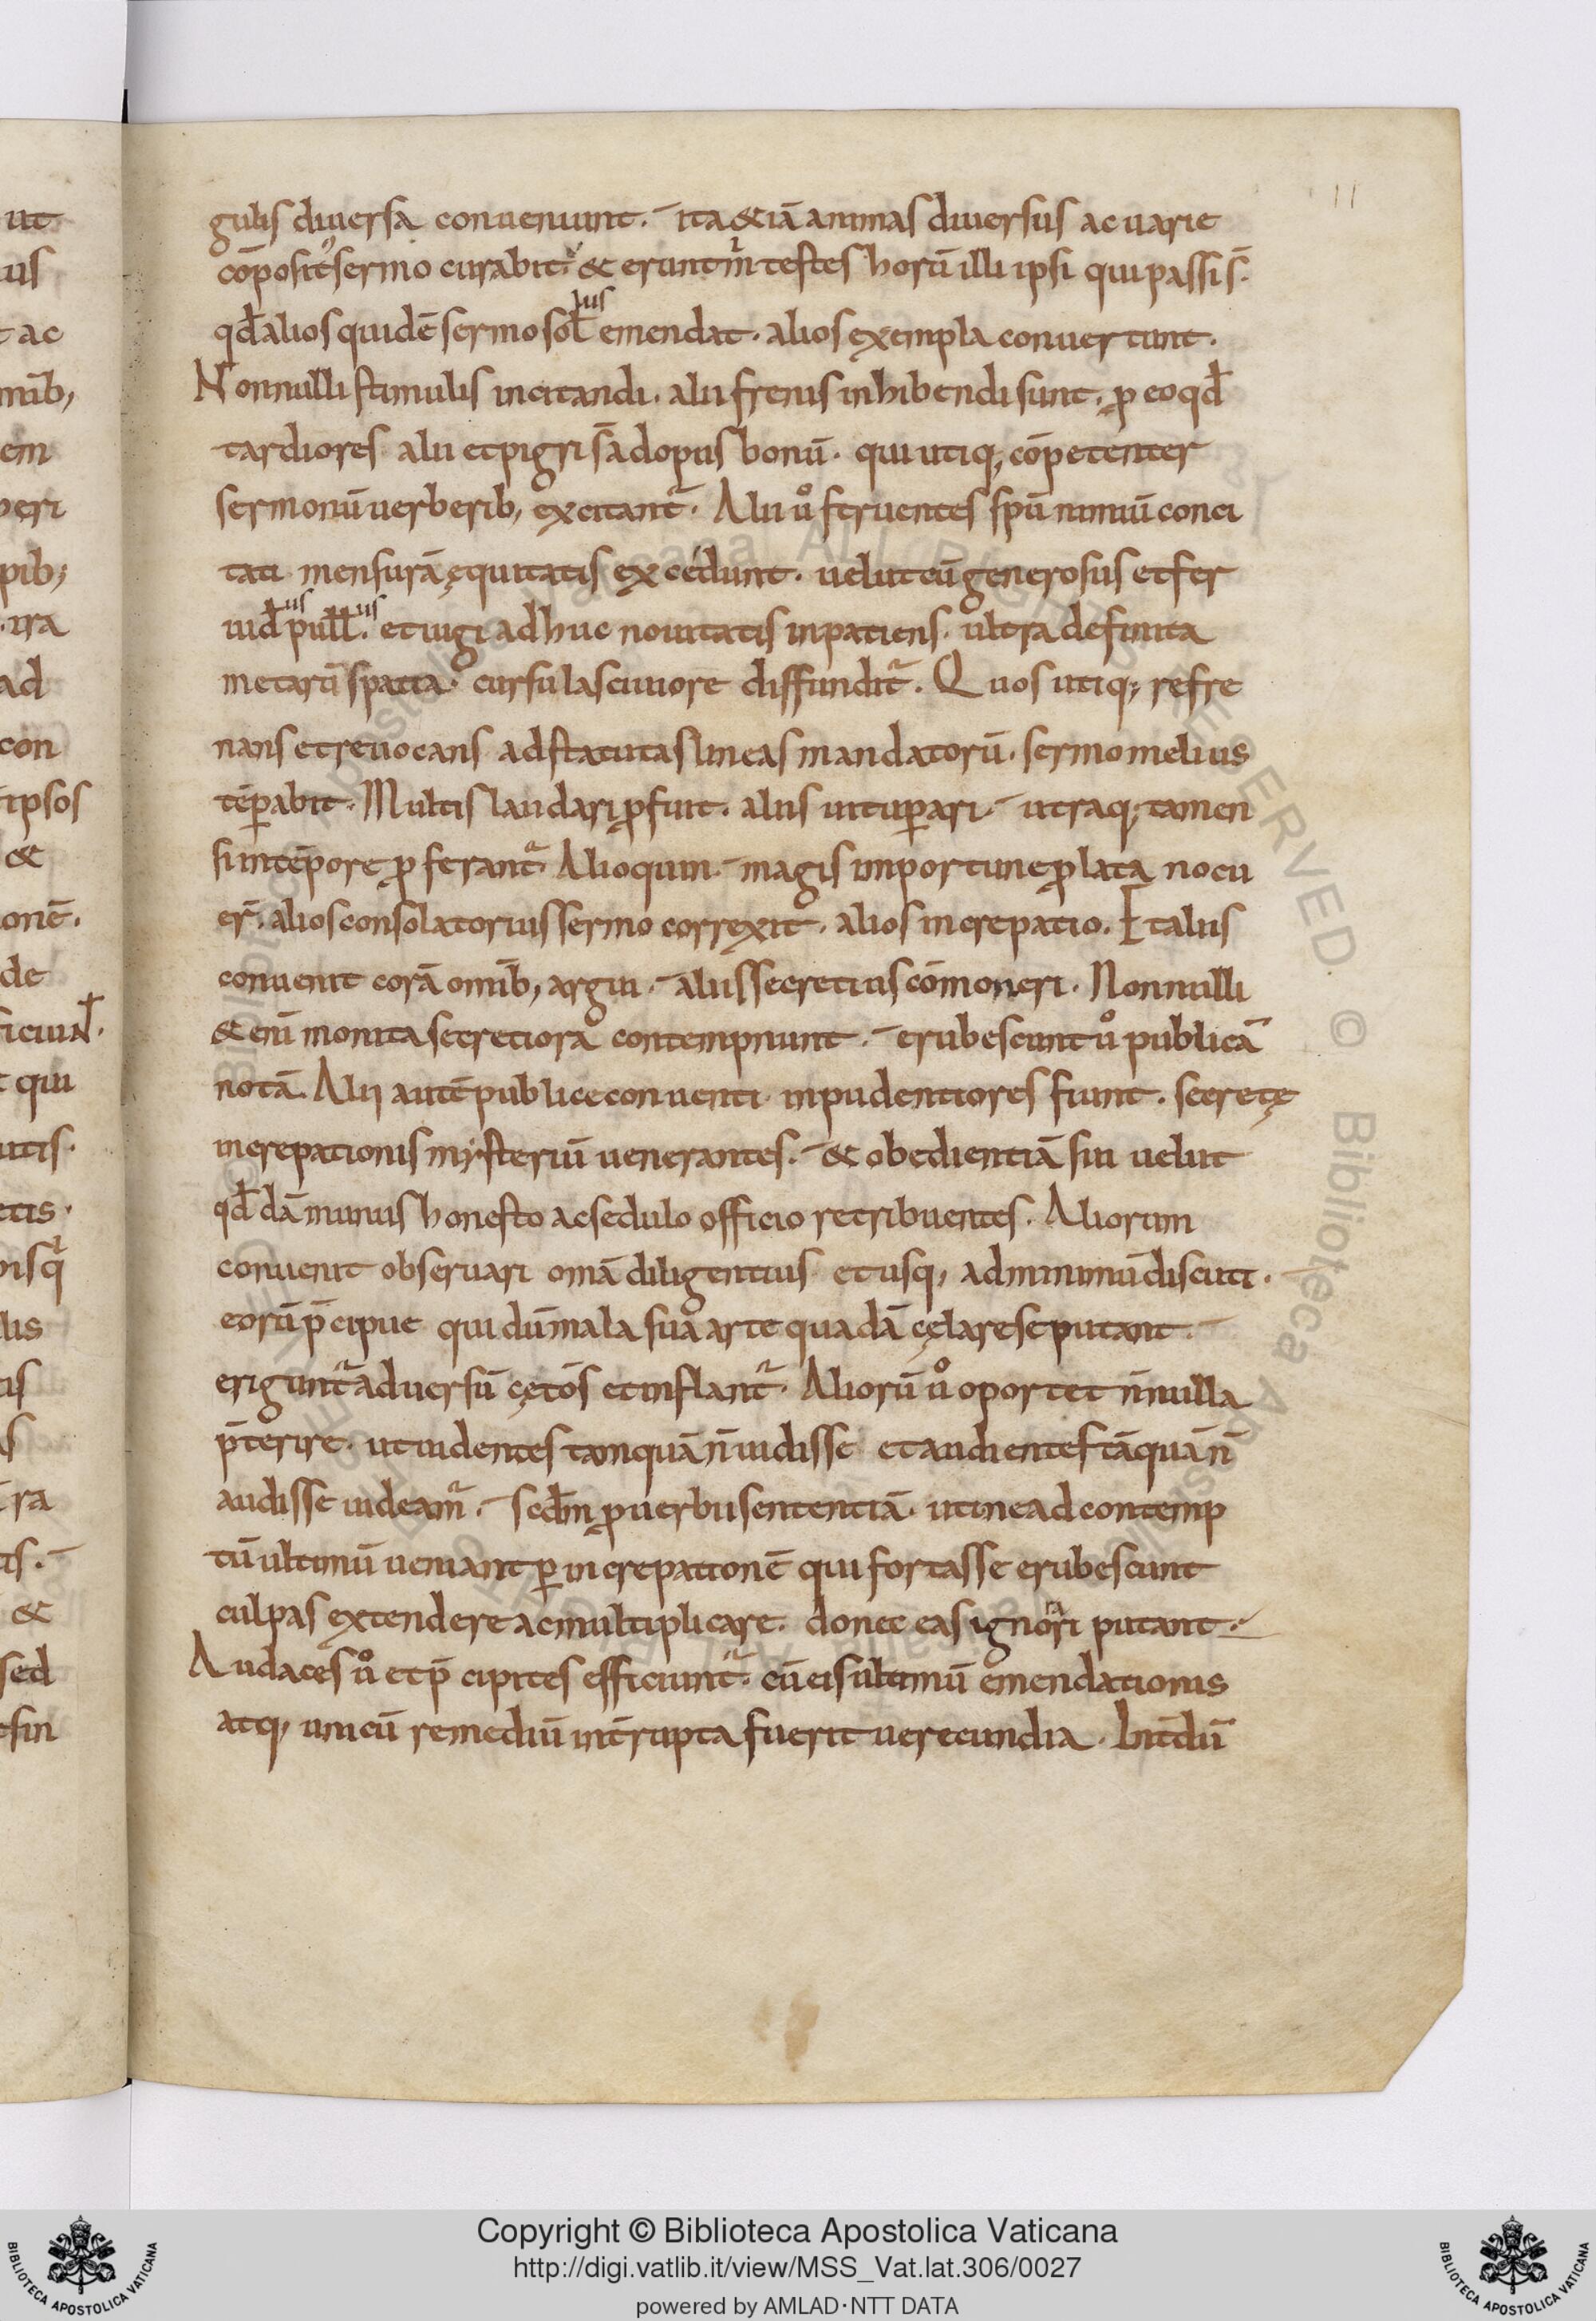 11
gulis diuersa conueniunt. ita &iā animas diuersus ac uarie
cōposit᾽ sermo curabit. & erunt m̄ testes horū illi ipsi qui passi s̄.
qđ alios quidē sermo sol᾽ lus emendat. alios exempla conuertunt.
Nonnulli stimulis incitandi. alii frenis inhibendi sunt. ꝓ eo qđ
tardiores alii et pigri s̄ ad opus bonū. qui utiq; cōpetenter
sermonū uerberib; excitant᷑. Alii ů feruentes spū nimiū conci
tati mensurā ęquitatis excedunt. uelut cū generosus et fer
uid᾽us pull᾽us. et iugi adhuc nouitatis inpatiens. ultra definita
metarū spatia. cursu lasciuiore diffundit᷑. Quos utiq; refre
nans et reuocans ad statutas lineas mandatorū. sermo melius
tēꝑabit. Multis laudari ꝓfuit. aliis uituꝑari. utraq; tamen
si in tēpore ꝓferant᷑. Alioquin magis importune ꝓlata nocu
er̄. alios consolatorius sermo correxit. alios increpatio. Et aliis
conuenit corā omīb; argui. aliis secretius cōmoneri. Nonnulli
&enī monita secretiora contempnunt. erubescunt ů publicā
notā. Alij autē publice conuenti inpudentiores fiunt. secretę
increpationis mẏsteriū uenerantes. & obedientiā sui uelut
qđdā munus honesto ac sedulo officio retribuentes. Aliorum
conuenit obseruari om̄a diligentius et usq; ad minimū discuti.
eorū p̄cipue qui dū mala sua arte quadā cęlare se putant.
erigunt᷑ aduersū cętōs et inflant᷑. Aliorū ů oportet n̄nulla
p̄terire. ut uidentes tamquā n̄ uidisse et audientes tāquā n̄
audisse uideam᷑. scđm ꝓuerbii sententiā. uti ne ad contemp
tū ultimū ueniant ꝑ increpationē qui fortasse erubescunt
culpas extendere ac multiplicare. donec eas ignorari putant.
Audaces ů et p̄cipites efficiunt᷑. cū eis ultimū emendationis
atq; unicū remediū int̄rupta fuerit uerecundia. Int̄dū
Copyright © Biblioteca Apostolica Vaticana
http://digi.vatlib.it/view/MSS_Vat.lat.306/0027
powered by AMLAD·NTT DATA